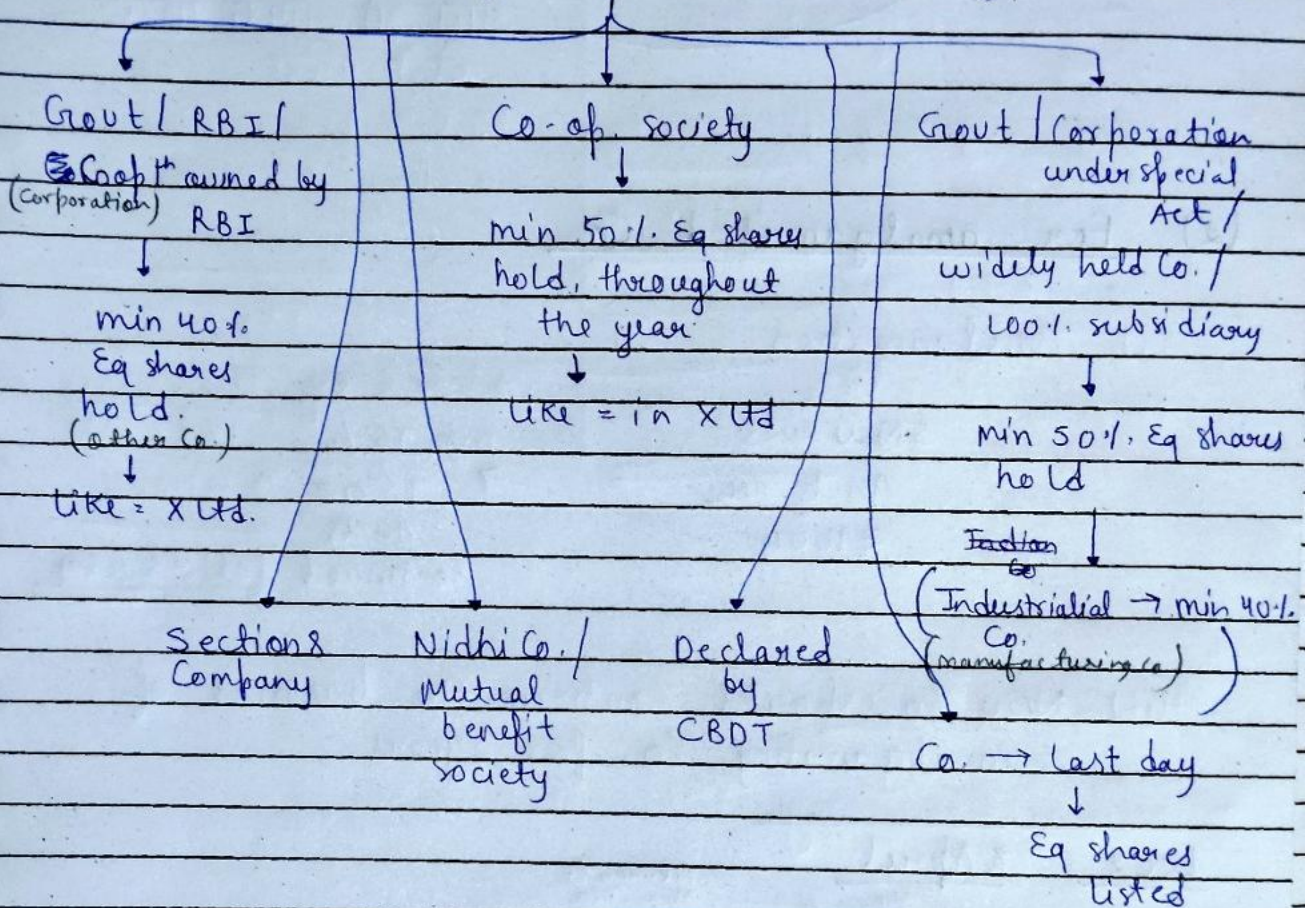 Govt / RBI /
Coopth owned by
(corporation)
RBI
min 40%
Eq shares
hold.
(other Co.)
like = X Ltd.
Co-op. society
min 50% Eq shares
hold, throughout
the year
like = in X Ltd
Govt / Corporation
under special
Act /
widely held Co. /
100% subsidiary
min 50% Eq shares
hold
(Industrialial → min 40%
Co.
(manufacturing co)
)
Section 8
Company
Nidhi Co. /
Mutual
benefit
society
Declared
by
CBDT
Co. → last day
Eq shares
listed